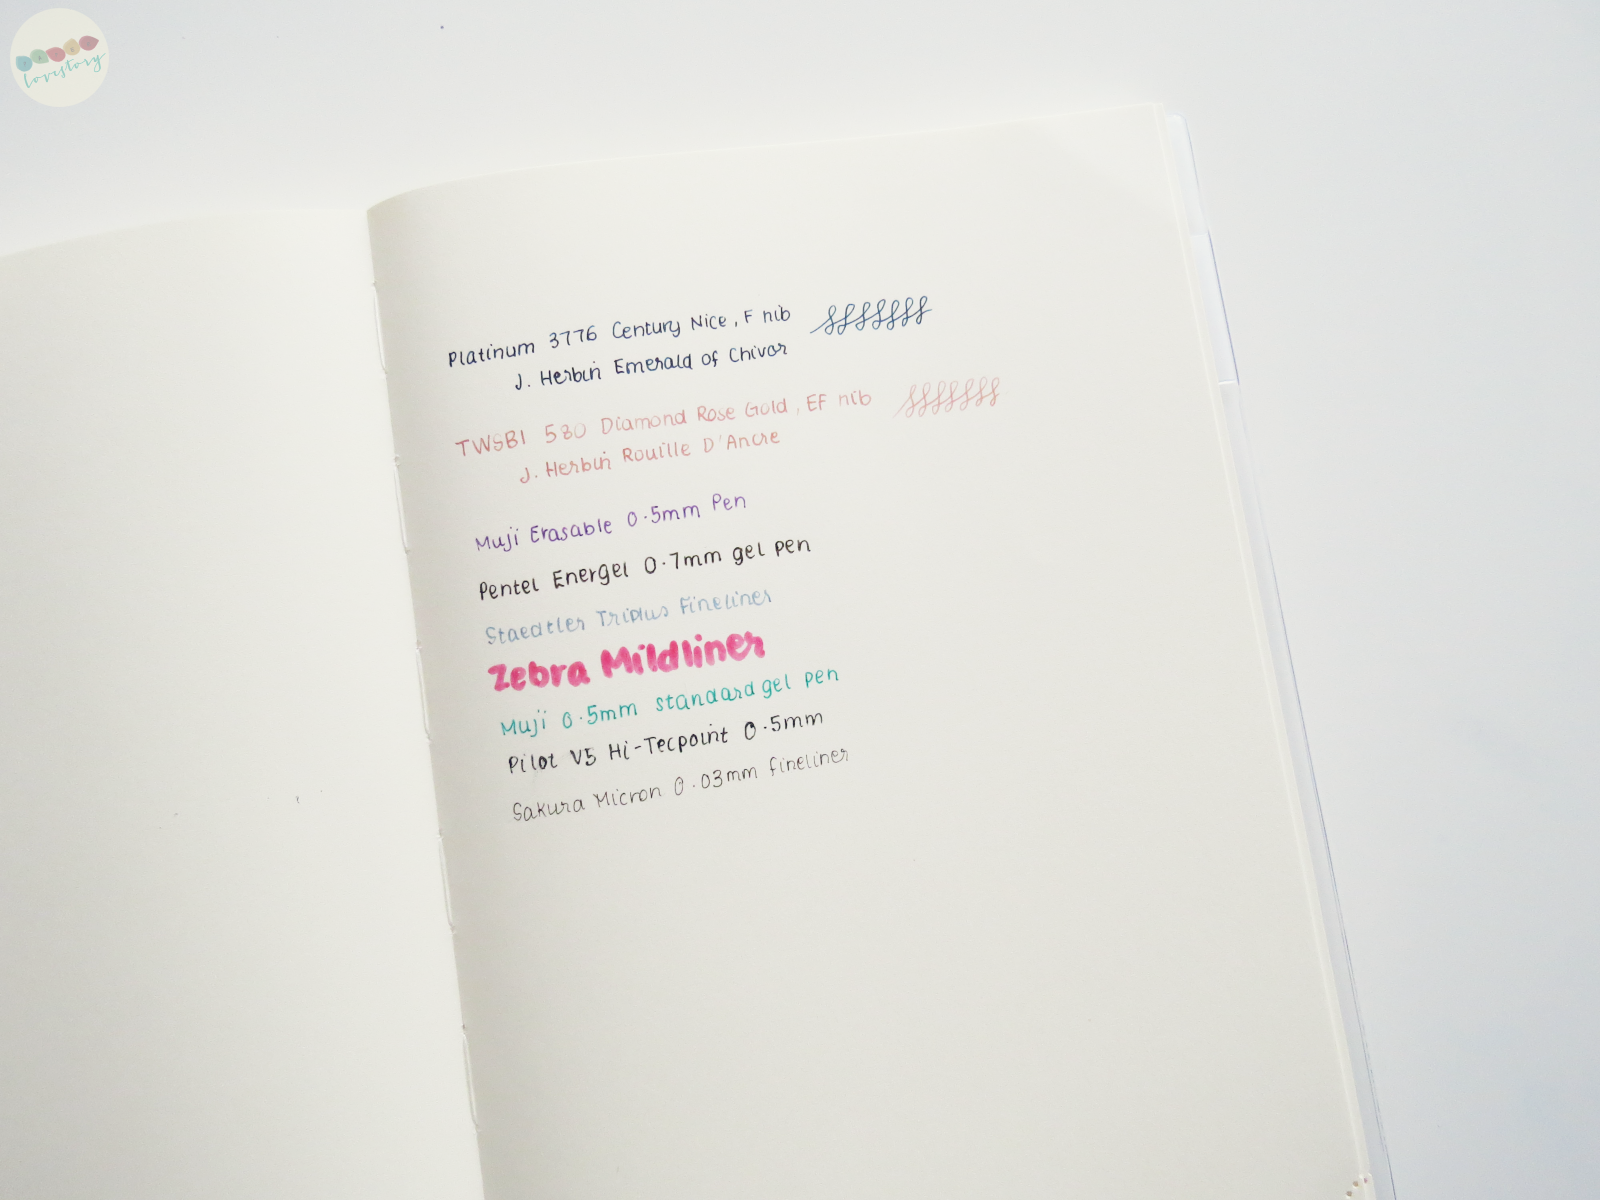 lovestory
Platinum 3776 Century Nice, F nib
J. Herbin Emerald of Chivor
TWSBI 580 Diamond Rose Gold, EF nib
J. Herbin Rouille D'Ancre
Muji Erasable 0.5mm Pen
Pentel Energel 0.7mm gel pen
Staedtler Triplus Fineliner
Zebra Mildliner
Muji 0.5mm standard gel pen
Pilot V5 Hi-Tecpoint 0.5mm
Sakura Micron 0.03mm fineliner